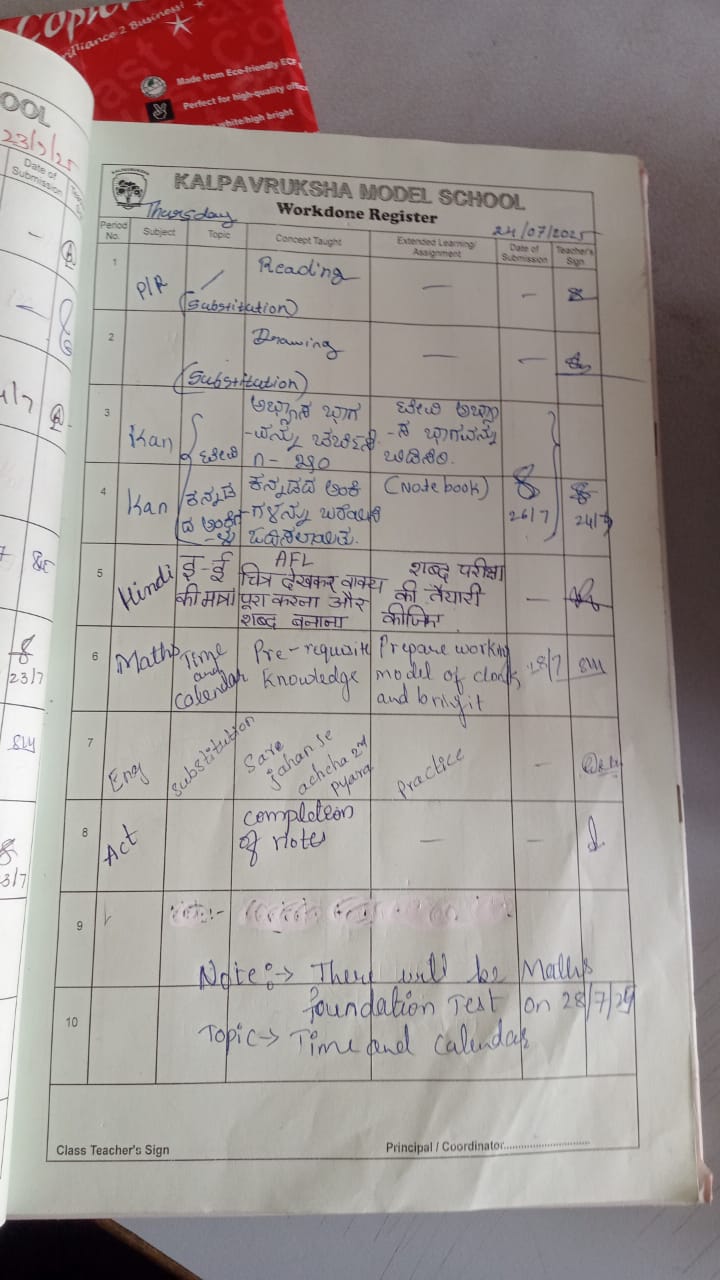 Copier
Brilliance 2 Business!
Made from Eco-friendly ECF
Perfect for high-quality office
white/high bright
OOL
23/7/25
Date of
Submission
KALPAVRUKSHA
KALPAVRUKSHA MODEL SCHOOL
Workdone Register
Thursday
24/07/2025
Period No.
Subject
Topic
Concept Taught
Extended Learning/ Assignment
Date of Submission
Teacher's Sign
1
P/R
(Substitution)
Reading
—
—
2
(Substitution)
Drawing
—
—
3
Kan
ಅಭ್ಯಾಸ ಭಾಗ
4
Kan
ಕನ್ನಡ
ಕನ್ನಡದ ಅಂಕಿ
(Notebook)
26/7
24/7
5
Hindi
इ-ई
की मात्रा
AFL
चित्र देखकर वाक्य
पूरा करना और
शब्द बनाना
शब्द परीक्षा
की तैयारी
कीजिए
—
6
Maths
Time
and
Calendar
Pre-requsite
Knowledge
Prepare working
model of clock
and bring it
28/7
7
Eng
Substitution
Sare
jahan se
achcha 2nd
Pyara
Practice
—
8
Act
completion
of notes
—
—
9
Note:-> There will be Maths
foundation Test on 28/7/25
10
Topic-> Time and Calendar
Class Teacher's Sign
Principal / Coordinator
23/7
23/7